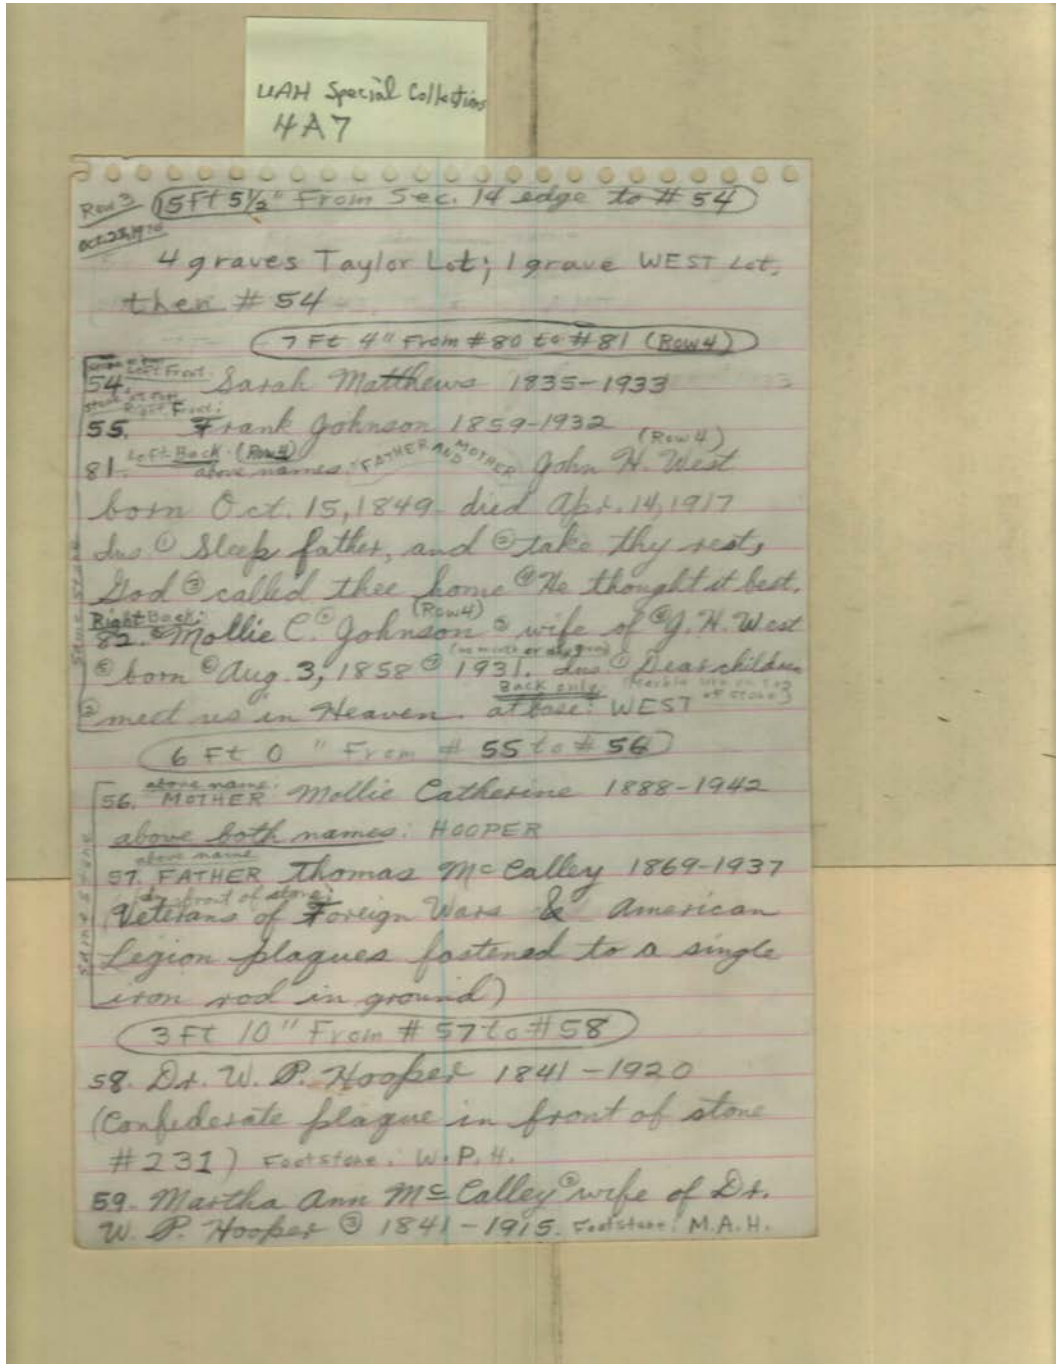 UAH Special Collections
4A7
Row 3
15 Ft 5½" From Sec. 14 edge to # 54
4 graves Taylor Lot; 1 grave WEST Lot,
then # 54
7 Ft 4" From #80 to #81 (Row 4)
Left Front.
54. Sarah Matthews 1835-1933
Right Front:
55. Frank Johnson 1859-1932
(Row 4)
Left Back. (Row 4)
81. above names: "FATHER AND MOTHER John H. West
born Oct. 15, 1849. died Apr. 14, 1917
Ins ① Sleep father, and ② take thy rest,
God ③ called thee home ④ He thought it best.
Right Back: (Row 4)
82. Mollie C. ② Johnson ③ wife of ④ J. H. West
(no month or day given)
⑤ born ⑥ Aug. 3, 1858 ⑦ 1931. Ins ① Dear children
Back only (Marble urn on top of stone)
② meet us in Heaven. at base: WEST
Same stone
6 Ft 0 " From # 55 to # 56
above name:
56. MOTHER Mollie Catherine 1888-1942
above both names: HOOPER
above name
57. FATHER Thomas McCalley 1869-1937
(In front of stone:
Veterans of Foreign Wars & American
Legion plagues fastened to a single
iron rod in ground)
Same stone
3 Ft 10" From # 57 to # 58
58. Dr. W. P. Hooper 1841-1920
(Confederate plague in front of stone
#231) Footstone: W.P.H.
59. Martha Ann McCalley ② wife of Dr.
W. P. Hooper ③ 1841-1915. Footstone: M.A.H.